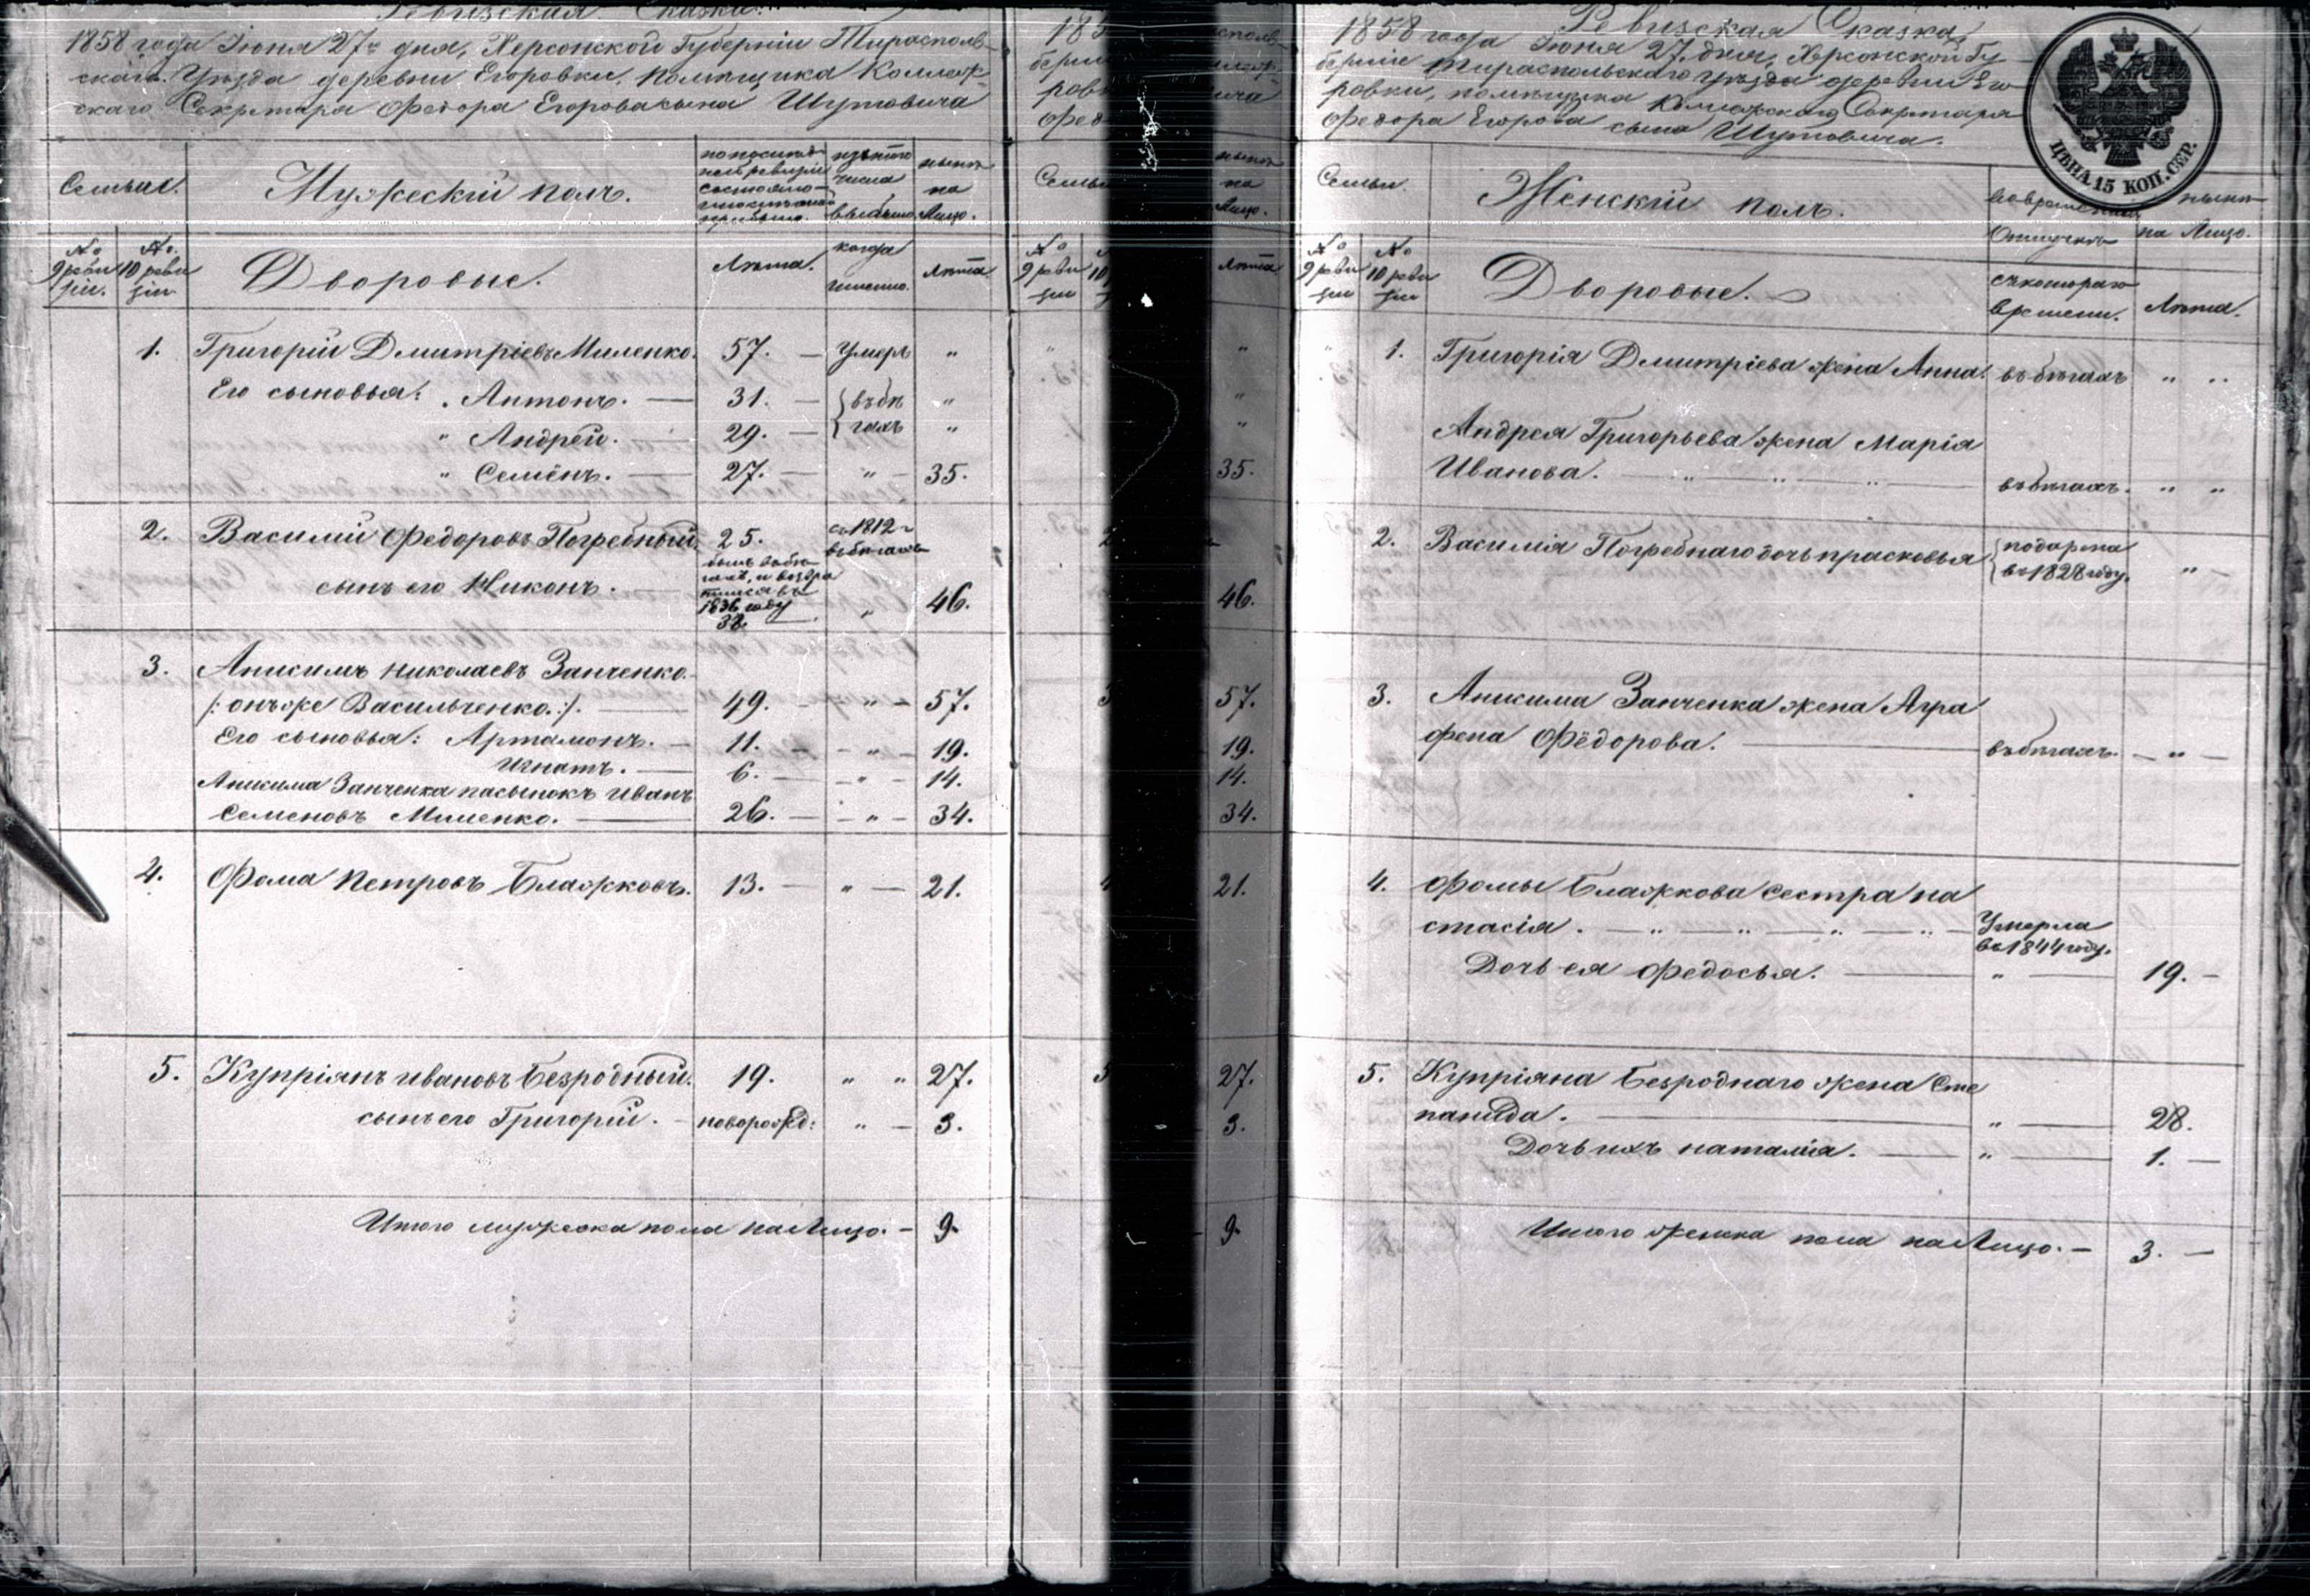 Ревизская Сказка.
1858 года Июня 27го дня, Херсонской Губерніи Тирасполь-
скаго Уезда деревни Егоровки, помѣщика Коллеж-
скаго Секретаря Федора Егорова сына Шутовича
Семьи. Мужескій полъ.
изъ того числа выбыло.
нынѣ на Лицо.
№ 9 ревизіи.
№ 10 ревизіи
Дворовые.
Лѣта.
когда именно.
Лѣта
1. Григорій Дмитріевъ Миленко. 57. — Умеръ "
Его сыновья: Антонъ. — 31. — въ бѣ "
" Андрей. — 29. — гахъ "
" Семёнъ. — 27. — " — 35.
2. Василій Федоровъ Погребный. 25. съ 1812 г въ бѣгахъ
сынъ его Никонъ.
былъ въ бѣгахъ, и возвратился въ
1836 году
38. — " 46.
3. Анисимъ Николаевъ Занченко.
/: онъ же Васильченко :/. — 49. — " — 57.
Его сыновья: Артамонъ. — 11. — " — 19.
Игнатъ. — 6. — " — 14.
Анисима Занченка пасынокъ Иванъ
Семеновъ Миленко. — 26. — " — 34.
4. Фома Петровъ Блажковъ. 13. — " — 21.
5. Купріянъ Ивановъ Безродный. 19. " " 27.
сынъ его Григорій. — новорожд: " — 3.
Итого мужеска пола на Лицо. — 9.
185
бер
ров
Фед
сполъ-
ича
Семьи
нынѣ
на
Лицо.
№
9 реви
зіи
Лѣта
35.
46.
57.
19.
14.
34.
21.
27.
3.
9.
Ревизская Сказка,
1858 года Июня 27 дня, Херсонской Гу
берніи Тираспольскаго уѣзда деревни Его
ровки, помѣщика Коллежскаго Секретаря
Федора Егорова сына Шутовича.
ЦѢНА 15 КОП. СЕР.
Семьи. Женскій полъ.
во временной Отлучкѣ
нынѣ на Лицо.
№ 9 ревизіи
№ 10 ревизіи
Дворовые.
съ котораго времени.
Лѣта.
1. Григорія Дмитріева жена Анна. въ бѣгахъ " "
Андрея Григорьева жена Марія
Иванова. — " — " — " — въ бѣгахъ. " "
2. Василія Погребнаго дочь Прасковья подарена
въ 1828 году. " —
3. Анисима Занченка жена Агра
фена Фёдорова. — въ бѣгахъ. — " —
4. Фомы Блажкова сестра На
стасія. — " — " — " — " — Умерла
въ 1844 году.
Дочь ея Федосья. — " — 19. —
5. Купріяна Безроднаго жена Сте
панида. — " — 28.
Дочь ихъ Наталія. — " — 1. —
Итого женска пола на Лицо. — 3. —